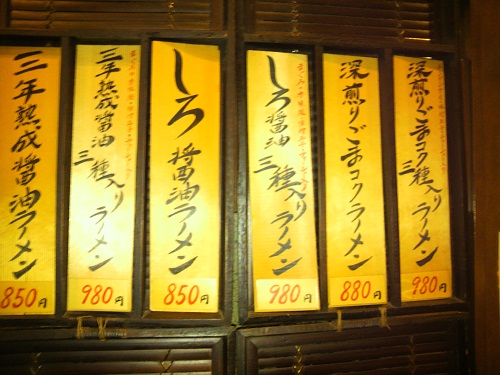 三年熟成醤油ラーメン
850円
三年熟成醤油
三種入り
ラーメン
980円
しろ醤油ラーメン
850円
しろ醤油
三種入り
ラーメン
980円
深煎りごまコクラーメン
880円
深煎りごまコク
三種入り
ラーメン
980円